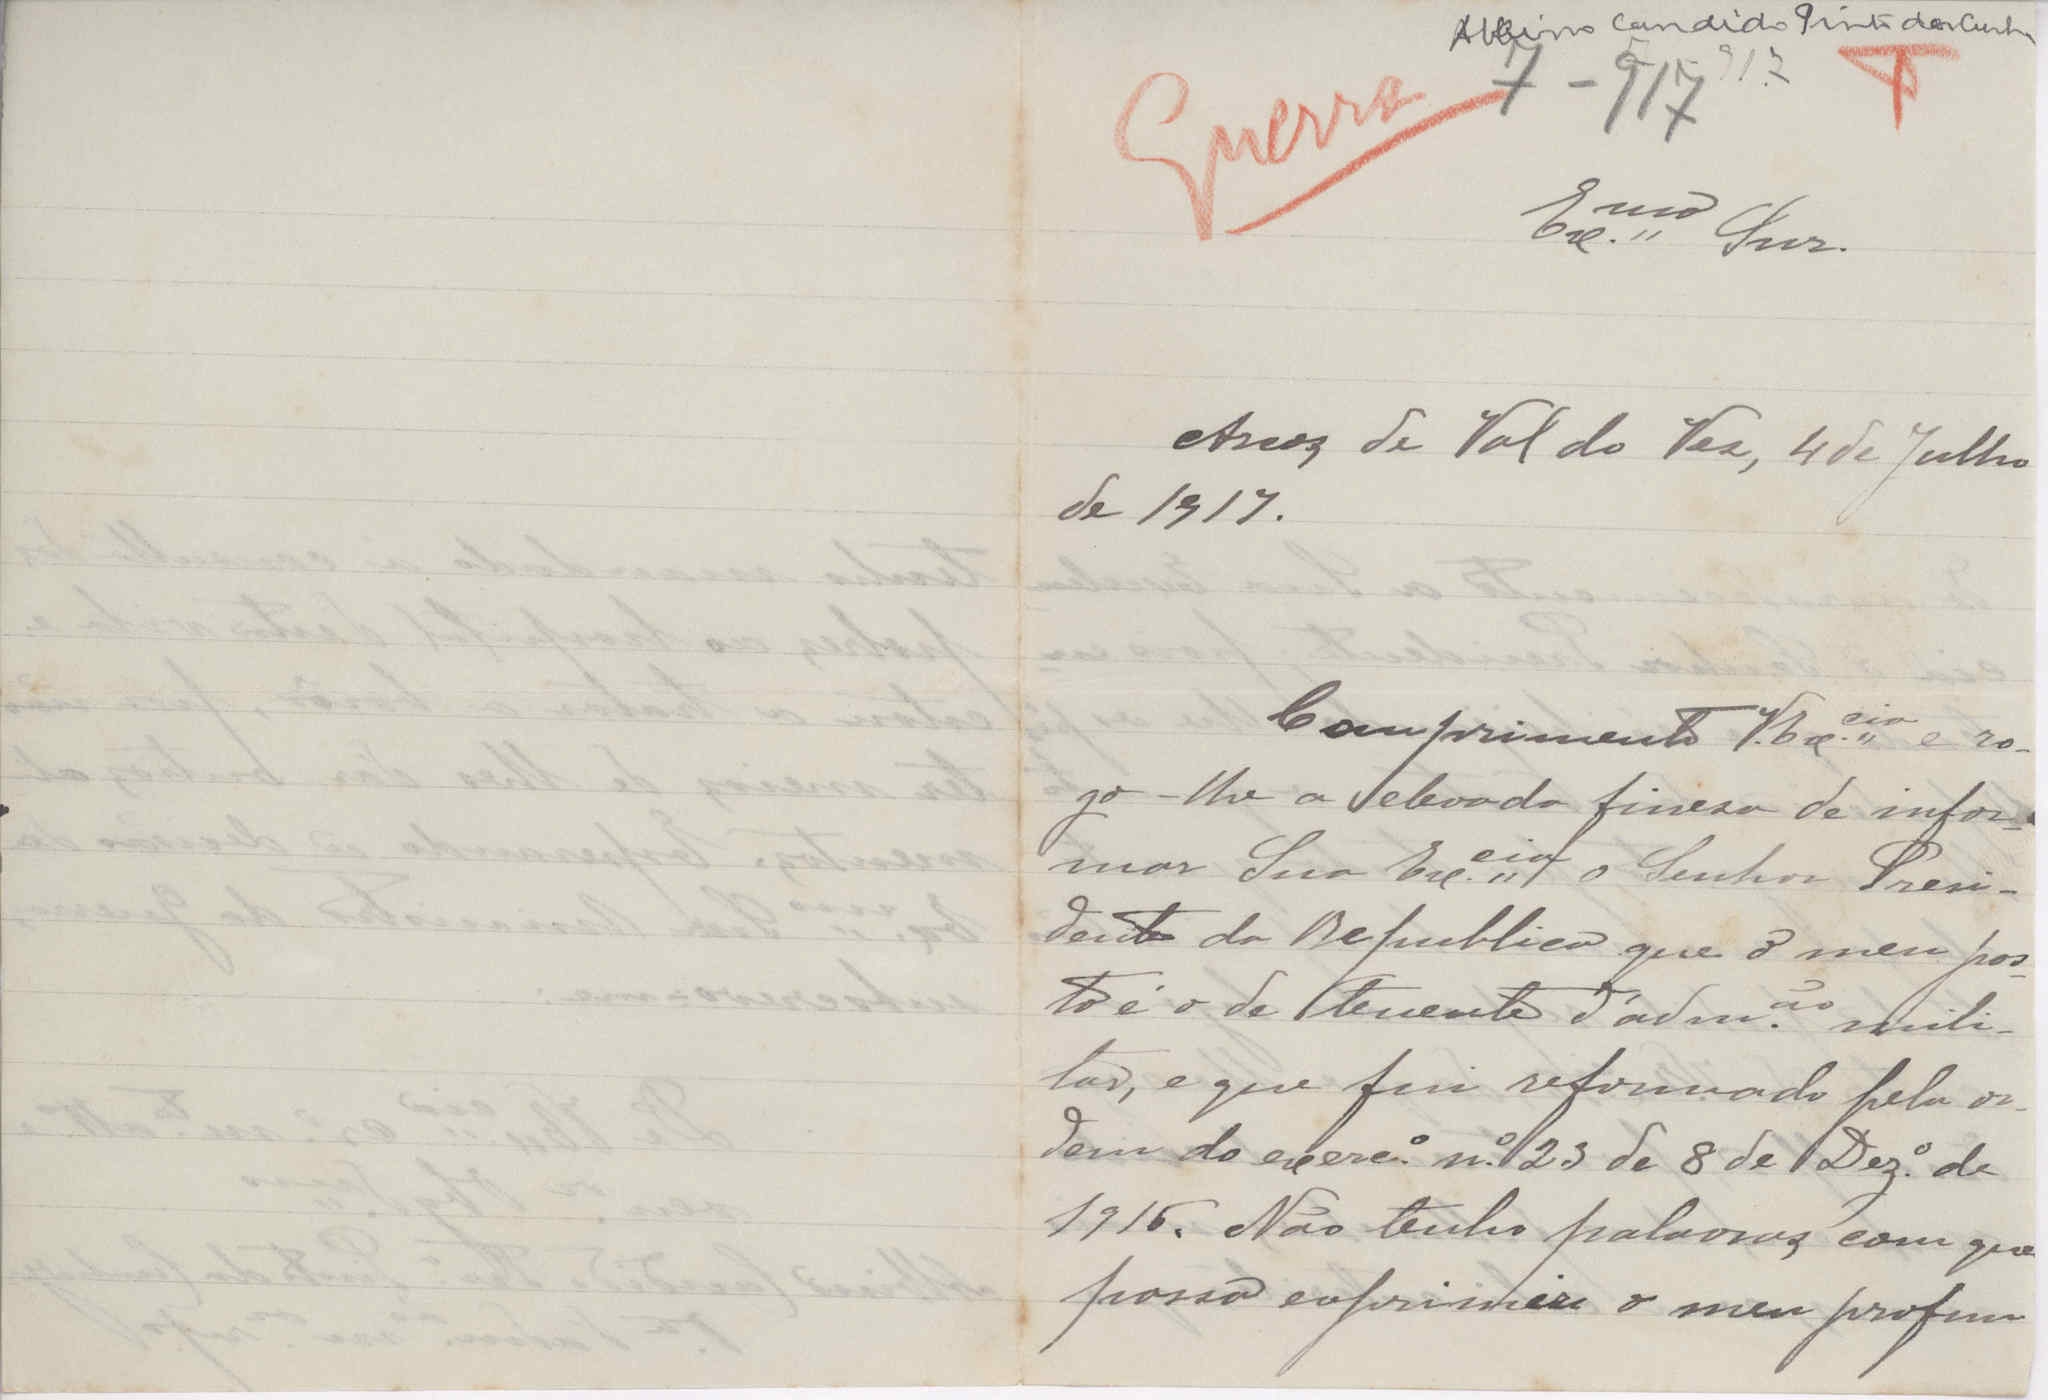 Albino Candido Pinto da Cunha
Guerra 7-917
Ex.mo Snr.
Arcos de Val do Vez, 4 de Julho
de 1917.
Comprimento V. Ex.cia e ro-
go-lhe a elevada fineza de infor-
mar Sua Ex.cia o Senhor Presi-
dente da Republica que o meu pos-
to é o de tenente d'adm.ão mili-
tar, e que fui reformado pela or-
dem do exerc.º n.º 23 de 8 de Dez.º de
1915. Não tenho palavras com que
possa exprimir o meu profun